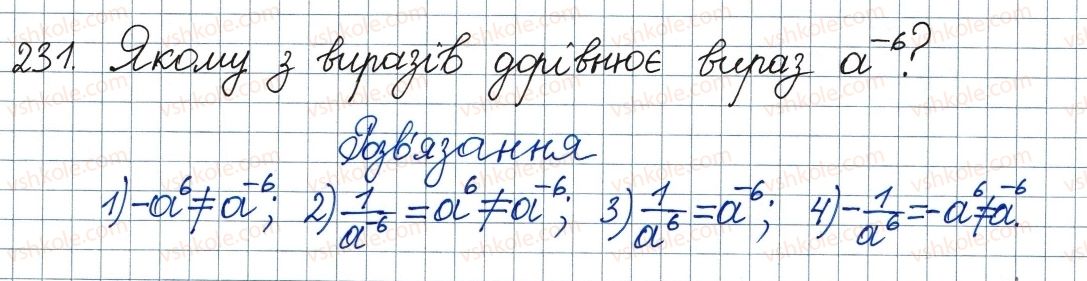 231. Якому з виразів дорівнює вираз a⁻⁶?
Розв'язання
1) -a⁶ ≠ a⁻⁶; 2) 1/a⁻⁶ = a⁶ ≠ a⁻⁶; 3) 1/a⁶ = a⁻⁶; 4) -1/a⁶ = -a⁶ ≠ a⁻⁶.